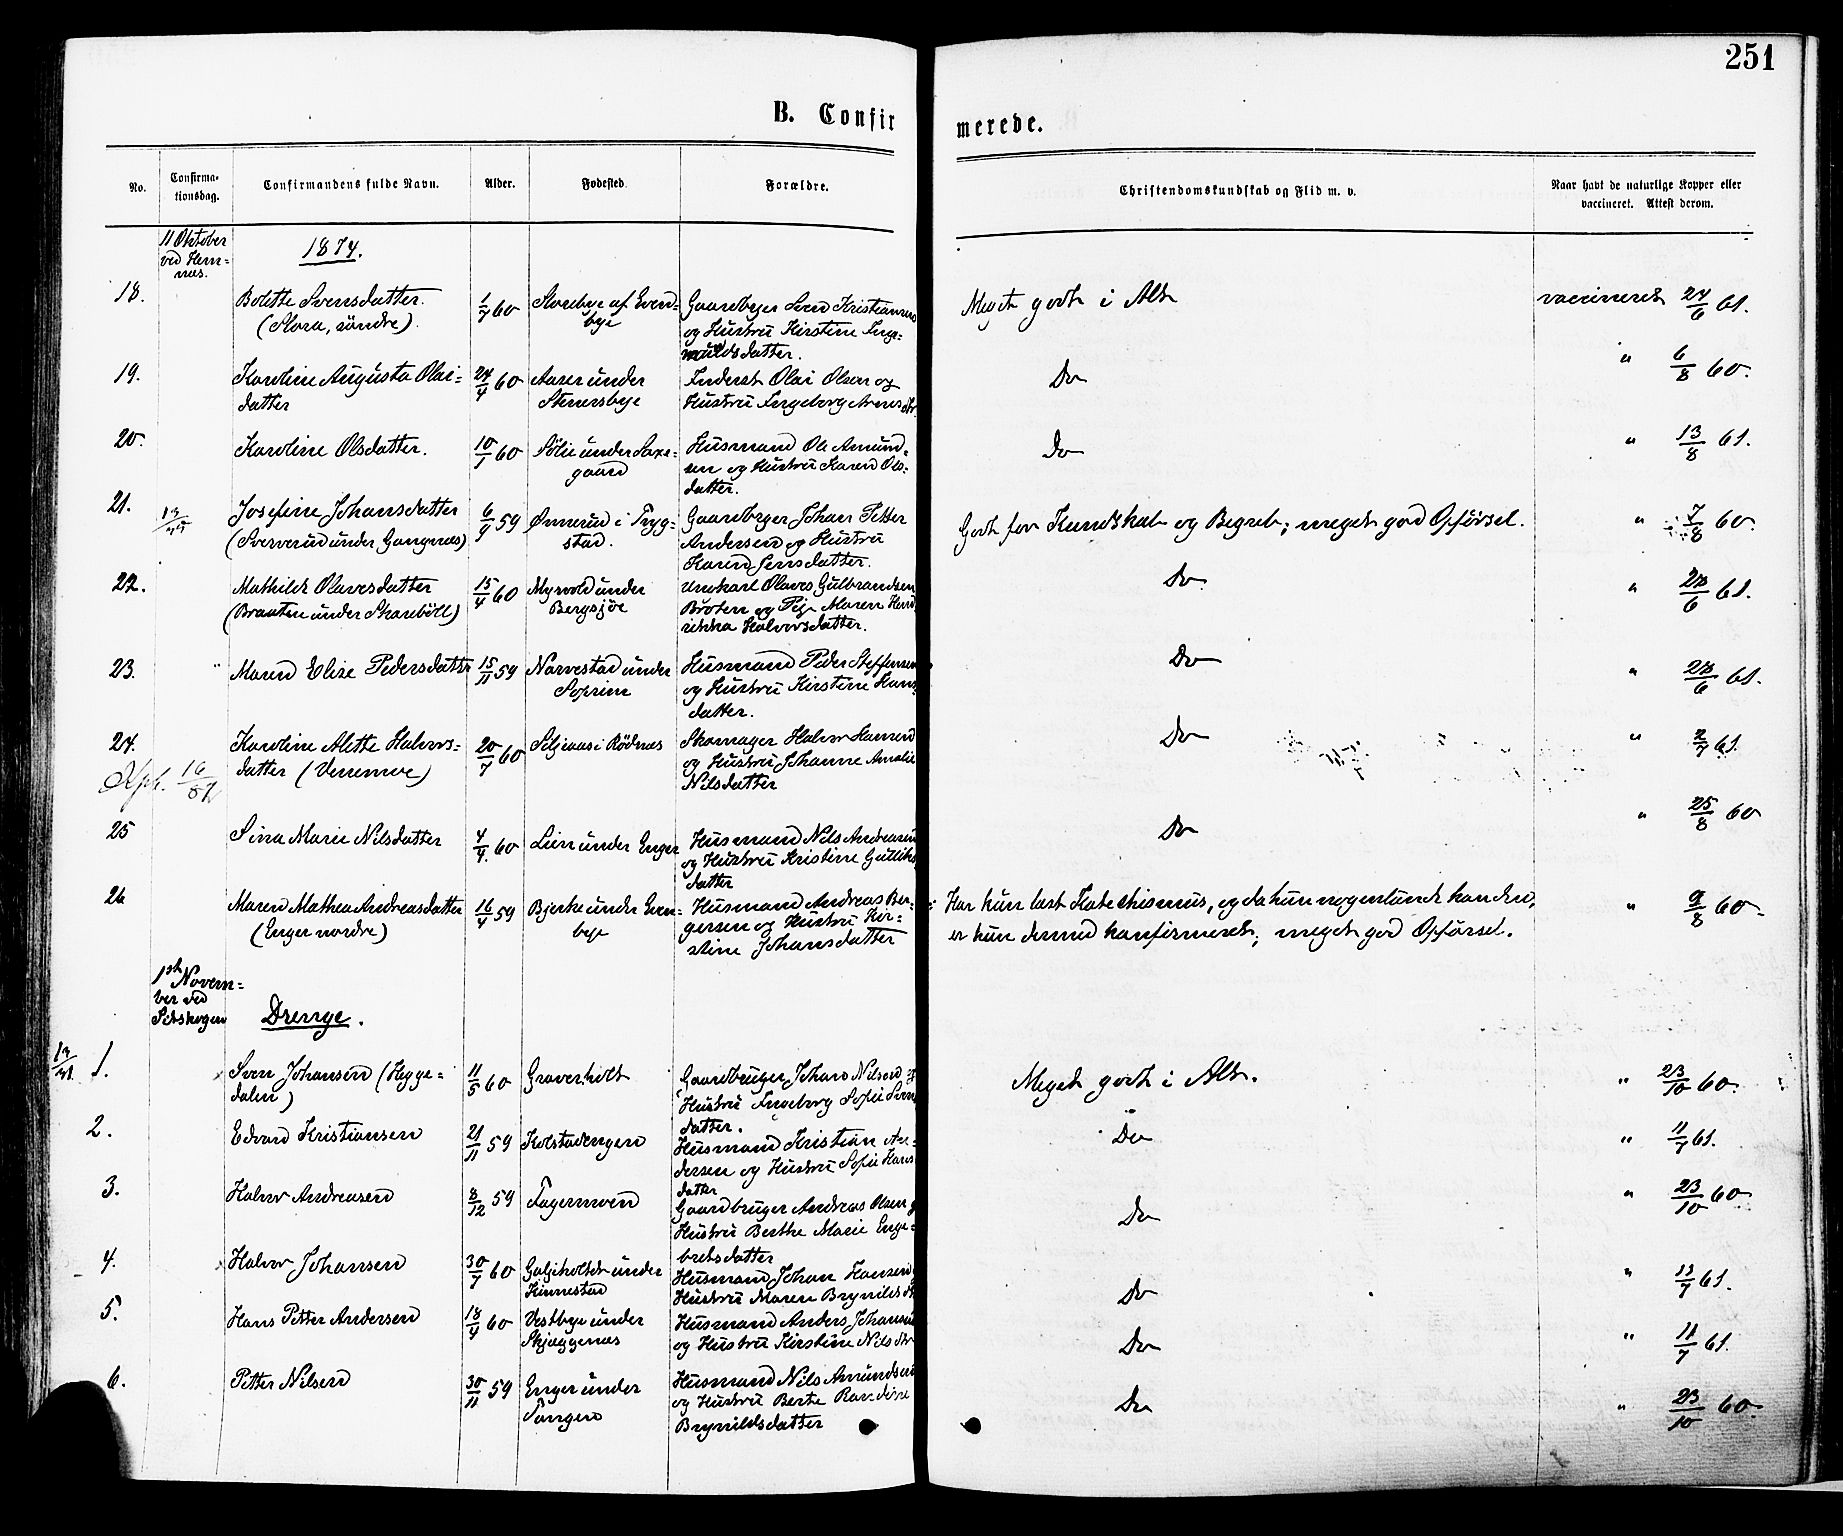 251
B. Confirmerede.
No.
Confirmationsdag.
Confirmandens fulde Navn.
Alder.
Fødested.
Forældre.
Christendomskundskab og Flid m. v.
Naar havt de naturlige Kopper eller vaccineret. Attest derom.
11 Oktober
ved Hem-
næs.
1874.
18.
Bolette Svensdatter.
(Slora, søndre).
1/7 60
Slorebye af Evend-
bye
Gaardbrger Svend Kristiansen
og Hustru Kirstine Inge-
muldsdatter.
Meget godt i Alt
vaccineret 24/6 61.
19.
Karoline Augusta Olai-
datter
24/4 60
Aaser under
Stenersbye
Inderst Olai Olsen og
Hustru Ingeborg Arnesdtr.
Do
" 6/8 60.
20.
Karoline Olsdatter.
10/1 60
Sølie under Saxe-
gaard
Husmand Ole Amund-
sen og Hustru Karen Ols-
datter.
Do
" 13/8 61.
21.
Josefine Johansdatter
(Sververud under Gangnæs)
6/9 59
Ønnerud i Tryg-
stad.
Gaardbrger Johan Petter
Andersen og Hustru
Karen Jensdatter.
Godt for Kundskab og Begreb; meget god Opførsel.
" 7/8 60.
22.
Mathilde Olavesdatter
(Braaten under Skarebøll)
15/4 60
Myrvold under
Bergsjøe
Unckarl Olaves Gulbrandsen
Broten og Pige Maren Hend
rikka Halvorsdatter.
Do.
61.
23.
Maren Elise Pedersdattr
15/11 59
Narvestad under
Soprim
Husmand Peder Steffensen
og Hustru Kirstine Hans-
datter.
Do
61.
24.
Karoline Alette Halvors-
datter (Vennemoe)
20/7 60
Seljeaas i Rødnæs
Skomager Halvor Hansen
og Hustru Johanne Amalie
Nilsdatter
Do
" 2/7 61.
16/8
25
Sina Marie Nilsdatter
4/4 60
Lien under Enger
Husmand Nils Andreasen
og Hustru Kristine Gulliks
datter
Do
" 25/8 60
26
Maren Mathea Andreasdatter
(Enger nordre)
16/4 59
Bjerke under Even-
bye
Husmand Andreas Ber-
gersen og Hustru Kir-
stine Johansdatter
Har kun læst Katechismus, og da hun nogenlunde kan den,
er hun dermed konfirmeret; meget god Opførsel.
" 9/8 60.
1ste Novem-
ber ved
Setskogen
Drenge.
1.
Sven Johansen (Hegge-
dalen)
11/5 60
Graverholt
Gaardbruger Johan Nilsen og
Hustru Ingeborg Sofie Svens
datter.
Meget godt i Alt.
" 23/10 60.
2.
Edvard Kristiansen
21/11 59
Kolstadengen
Husmand Kristian An-
dersen og Hustru Sofie Hans
datter
Do
" 11/7 61.
3.
Halvor Andreasen
8/12 59
Fagermoen
Gaardbruger Andreas Olsen og
Hustru Berthe Marie Enge-
bretsdatter
Do
" 23/10 60
4.
Halvor Johansen
30/7 60
Galjeholtet under
Kinnestad
Husmand Johan Hansen og
Hustru Maren Brynildsdtr
Do
" 11/7 61.
5.
Hans Petter Andersen
18/4 60
Vestbye under
Skjæggenæs
Husmand Anders Johansen
og Hustru Kirstine Nilsdtr
Do
" 11/7 61.
6.
Petter Nilsen
30/11 59
Enger under
Tangen
Husmand Nils Amundsen
og Hustru Berte Randine
Brynildsdatter
Do
" 23/10 60.